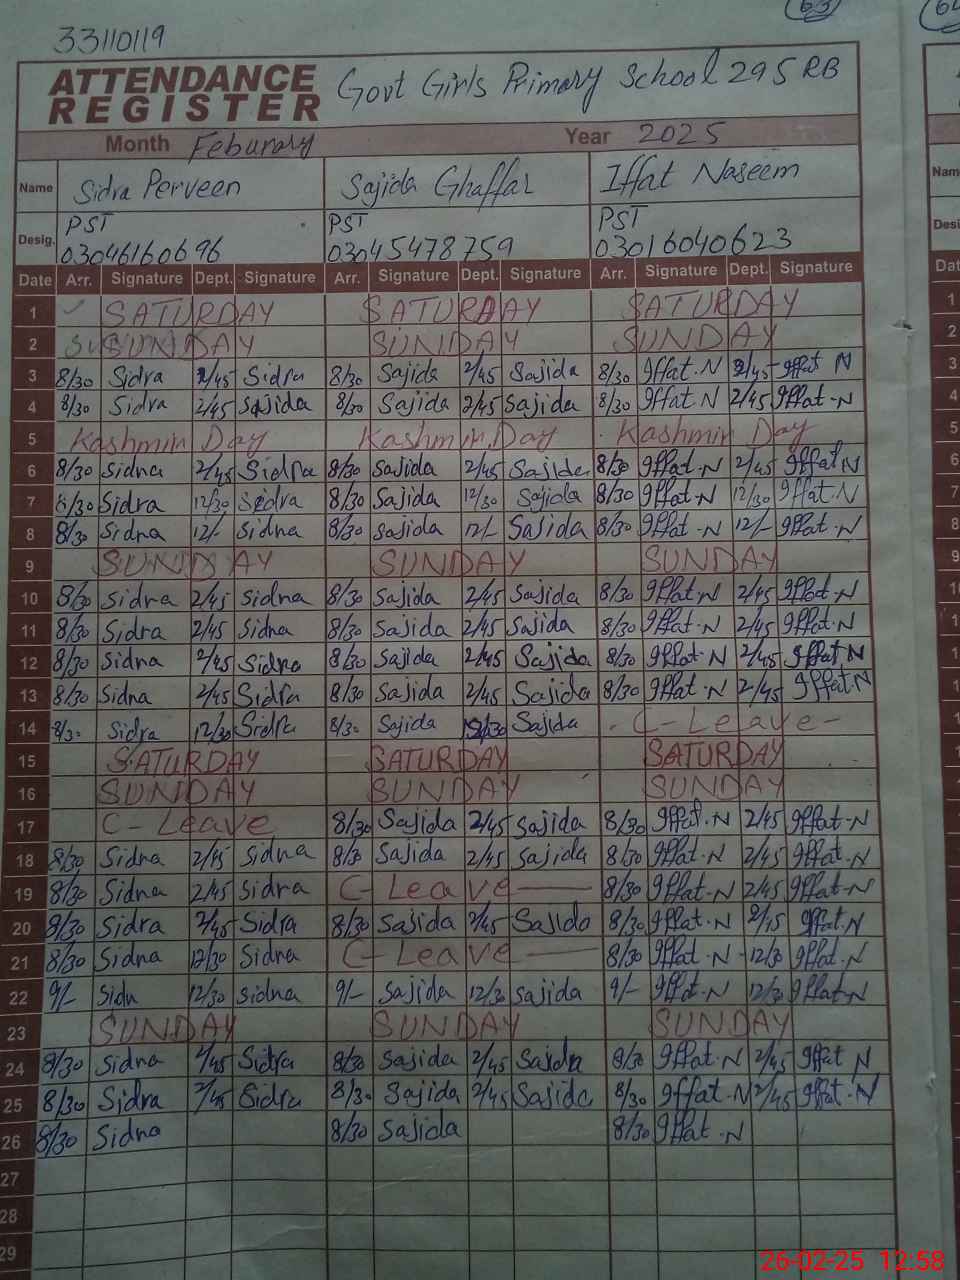 63
33110119
ATTENDANCE REGISTER Govt Girls Primary School 295 RB
Month Feburary Year 2025
Name Sidra Perveen Sajida Ghaffar Iffat Naseem
Desig. PST 03046160696 PST 03045478759 PST 03016040623
Date Arr. Signature Dept. Signature Arr. Signature Dept. Signature Arr. Signature Dept. Signature
1 SATURDAY SATURDAY SATURDAY
2 SUNDAY SUNDAY SUNDAY
3 8/30 Sidra 2/45 Sidra 8/30 Sajida 2/45 Sajida 8/30 Iffat.N 2/45 Iffat N
4 8/30 Sidra 2/45 Sajida 8/30 Sajida 2/45 Sajida 8/30 Iffat.N 2/45 Iffat-N
5 Kashmir Day Kashmir Day Kashmir Day
6 8/30 Sidra 2/45 Sidra 8/30 Sajida 2/45 Sajida 8/30 Iffat.N 2/45 Iffat N
7 8/30 Sidra 12/30 Sidra 8/30 Sajida 12/30 Sajida 8/30 Iffat-N 12/30 Iffat.N
8 8/30 Sidra 12/- Sidra 8/30 Sajida 12/- Sajida 8/30 Iffat-N 12/- Iffat-N
9 SUNDAY SUNDAY SUNDAY
10 8/30 Sidra 2/45 Sidra 8/30 Sajida 2/45 Sajida 8/30 Iffat-N 2/45 Iffat-N
11 8/30 Sidra 2/45 Sidra 8/30 Sajida 2/45 Sajida 8/30 Iffat-N 2/45 Iffat-N
12 8/30 Sidra 2/45 Sidra 8/30 Sajida 2/45 Sajida 8/30 Iffat-N 2/45 Iffat N
13 8/30 Sidra 2/45 Sidra 8/30 Sajida 2/45 Sajida 8/30 Iffat-N 2/45 Iffat.N
14 8/30 Sidra 12/30 Sidra 8/30 Sajida 12/30 Sajida C-Leave-
15 SATURDAY SATURDAY SATURDAY
16 SUNDAY SUNDAY SUNDAY
17 C-Leave 8/30 Sajida 2/45 Sajida 8/30 Iffat.N 2/45 Iffat-N
18 8/30 Sidra 2/45 Sidra 8/30 Sajida 2/45 Sajida 8/30 Iffat-N 2/45 Iffat-N
19 8/30 Sidra 2/45 Sidra C-Leave 8/30 Iffat-N 2/45 Iffat-N
20 8/30 Sidra 2/45 Sidra 8/30 Sajida 2/45 Sajida 8/30 Iffat-N 2/45 Iffat.N
21 8/30 Sidra 12/30 Sidra C-Leave 8/30 Iffat-N 12/30 Iffat-N
22 9/- Sidra 12/30 Sidra 9/- Sajida 12/30 Sajida 9/- Iffat-N 12/30 Iffat-N
23 SUNDAY SUNDAY SUNDAY
24 8/30 Sidra 2/45 Sidra 8/30 Sajida 2/45 Sajida 8/30 Iffat-N 2/45 Iffat N
25 8/30 Sidra 2/45 Sidra 8/30 Sajida 2/45 Sajida 8/30 Iffat-N 2/45 Iffat-N
26 8/30 Sidra 8/30 Sajida 8/30 Iffat-N
27
28
29
26-02-25 12:58